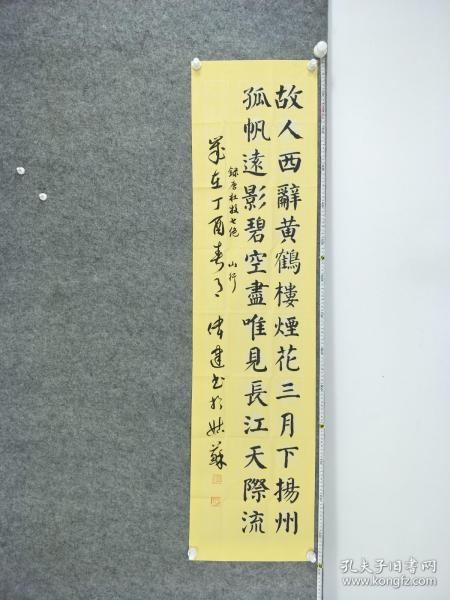 故人西辭黃鶴樓煙花三月下揚州
孤帆遠影碧空盡唯見長江天際流
錄唐杜牧七绝 山行
歲在丁酉春月 偉建书於姑蘇
孔夫子旧书网
www.kongfz.com